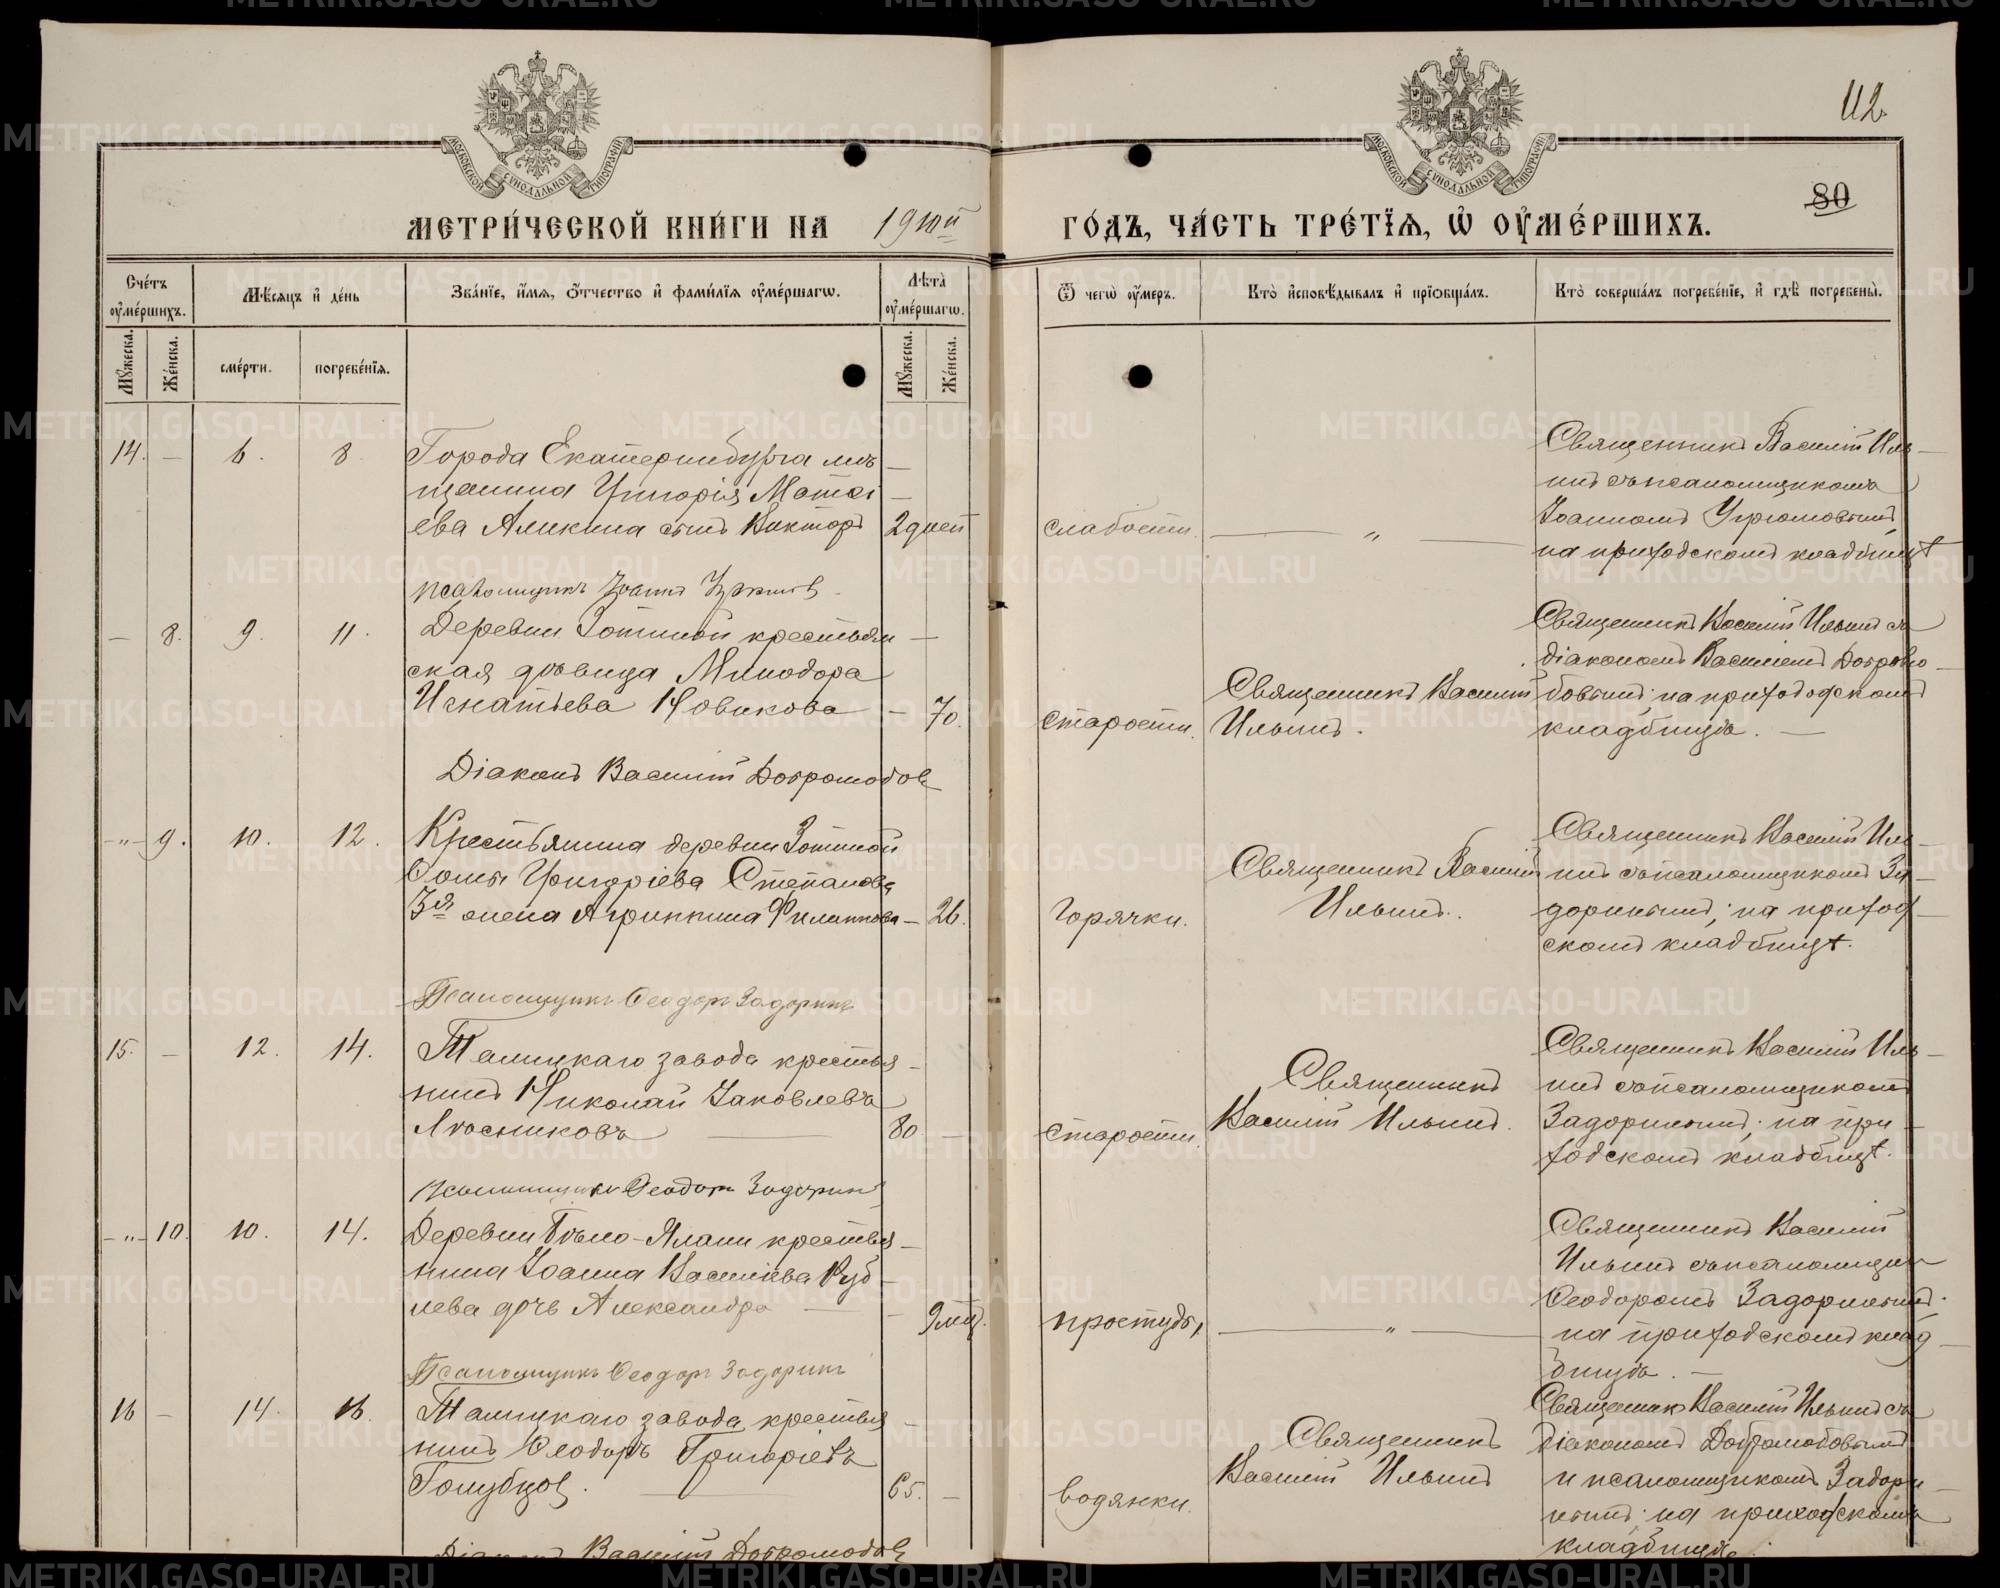 112.
80
МЕТРИ́ЧЕСКОЙ КНИ́ГИ НА 1910й ГО́ДЪ, ЧА́СТЬ ТРЕ́ТЇѦ, Ѿ ОУ҆МЕ́РШИХЪ.
МОСКОВСКОЙ СѴНОДАЛЬНОЙ ТИПОГРАФІИ
МОСКОВСКОЙ СѴНОДАЛЬНОЙ ТИПОГРАФІИ
Сче́тъ оу҆ме́ршихъ.
Мѣ́сяцъ и҆ де́нь
Зва́нїе, и҆́мѧ, ѻ҆́тчество и҆ фами́лїѧ оу҆ме́ршагѡ.
Лѣ́та оу҆ме́ршагѡ.
Ѿ чегѡ̀ оу҆́меръ.
Кто̀ и҆сповѣ́дывалъ и҆ прїѡбща́лъ.
Кто̀ соверша́лъ погребе́нїе, и҆ гдѣ̀ погребены̀.
Мꙋ́жеска.
Же́нска.
сме́рти.
погребе́нїѧ.
Мꙋ́жеска.
Же́нска.
14. — 6. 8.
Города Екатеринбурга мѣ—
щанина Григорія Матѳі—
ева Аликина сынъ Викторъ 2 дней
слабости. — „ —
Священникъ Василій Иль—
инъ съ псаломщикомъ
Іоанномъ Угрюмовымъ,
на приходскомъ кладбищѣ
псаломщикъ Іоаннъ
— 8. 9. 11.
Деревни Зотиной крестьян—
ская дѣвица Минодора
Игнатьева Новикова — 70.
старости.
Священникъ Василій
Ильинъ.
Священникъ Василій Ильинъ съ
діакономъ Василіемъ Добромо—
бовымъ; на приходскомъ
кладбищѣ. —
Діаконъ Василій Добромобовъ
—„— 9. 10. 12.
Крестьянина деревни Зотиной
Ѳомы Григорьева Степанова
3я жена Агриппина Филиппова — 26.
Горячки.
Священникъ Василій
Ильинъ.
Священникъ Василій Иль—
инъ съ псаломщикомъ За—
доринымъ; на приход—
скомъ кладбищѣ.
Псаломщикъ Ѳеодоръ Задоринъ
15. — 12. 14.
Талицкаго завода крестья—
нинъ Николай Яковлевъ
Лѣсниковъ — 80 —
старости.
Священникъ
Василій Ильинъ.
Священникъ Василій Иль—
инъ съ псаломщикомъ
Задоринымъ; на при—
ходскомъ кладбищѣ.
псаломщикъ Ѳеодоръ Задоринъ
—„— 10. 10. 14.
Деревни Бѣло-Ялани крестья—
нина Іоанна Васильева Руб—
лева дочь Александра — — 9 мѣс.
простуды,
— „ —
Священникъ Василій
Ильинъ съ псаломщик
Ѳеодоромъ Задоринымъ;
на приходскомъ клад—
бищѣ. —
Псаломщикъ Ѳеодоръ Задоринъ
16 — 14. 16.
Талицкаго завода, крестья—
нинъ Ѳеодоръ Григорьевъ
Голубцовъ. — 65. —
водянки.
Священникъ
Василій Ильинъ
Священникъ Василій Ильинъ съ
діакономъ Добромобовымъ
и псаломщикомъ Задори—
нымъ; на приходскомъ
кладбищѣ.
Діаконъ Василій Добромобовъ
METRIKI.GASO-URAL.RU